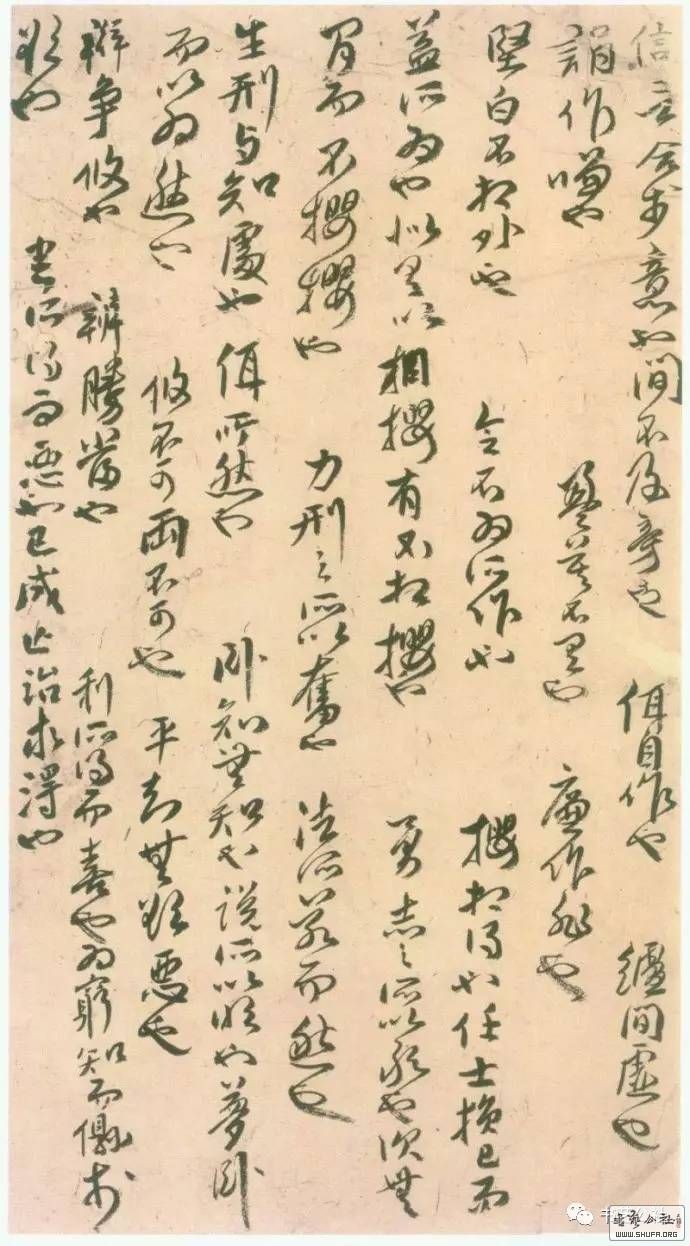 信言合於意也 間不及旁也 佴自作也 纑間虛也
作嗛也 盈莫不有也 廉作非也
堅白不相外也 令不為所作也 攖相得也 任士損己而
益所為也 似有以相攖有不相攖也 勇志之所以敢也 次無
間而不攖攖也 力刑之所以奮也 法所若而然也
生刑与知處也 佴所然也 卧知無知也 說所以明也 夢卧
而以為然也 攸不可兩不可也 平知無欲惡也
辯爭攸也 辯勝當也 利所得而喜也 為窮知而於
欲也 害所得而惡也 已成亡 治求得也
WWW.SHUFA.ORG